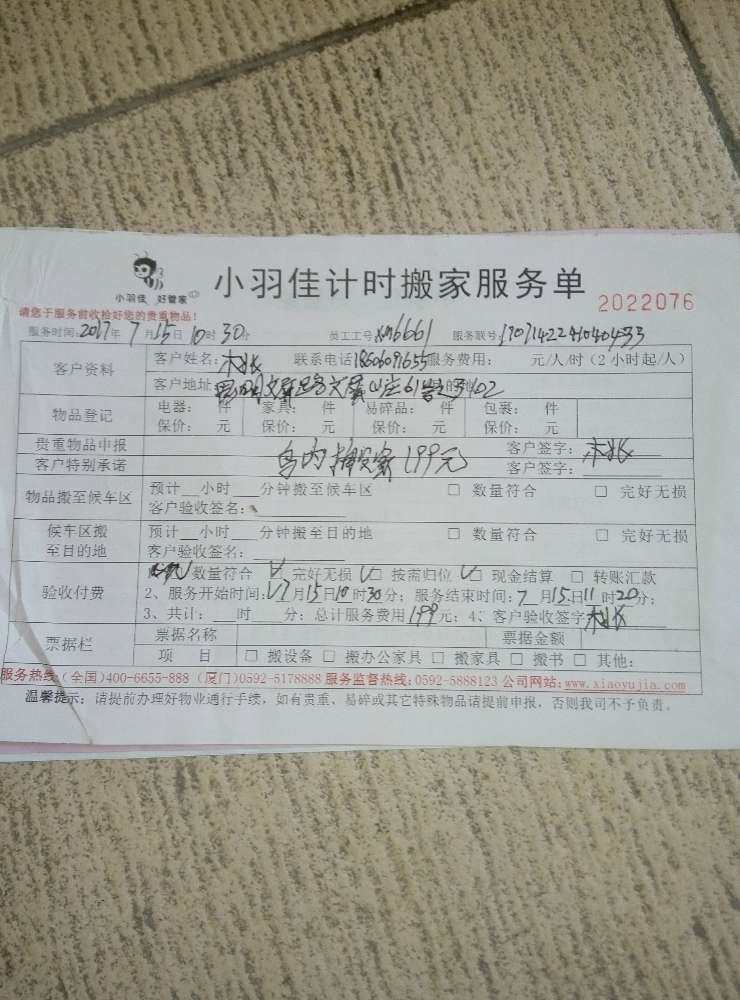 小羽佳 好管家
小羽佳计时搬家服务单
2022076
请您于服务前收拾好您的贵重物品!
服务时间:2017年7月15日10时30分 员工工号xm6661 服务联号
客户资料 客户姓名: 联系电话18606091655服务费用: 元/人/时(2小时起/人)
客户地址
物品登记 电器: 件 家具: 件 易碎品: 件 包裹: 件
保价: 元 保价: 元 保价: 元 保价: 元
贵重物品申报 客户签字:
客户特别承诺 岛内搬家199元 客户签字:
物品搬至候车区 预计__小时___分钟搬至候车区 □ 数量符合 □ 完好无损
客户验收签名:
候车区搬至目的地 预计__小时___分钟搬至目的地 □ 数量符合 □ 完好无损
客户验收签名:
验收付费 数量符合 完好无损 □ 按需归位 □ 现金结算 □ 转账汇款
2、服务开始时间:7月15日10时30分; 服务结束时间:7月15日11时20分;
3、共计:___时___分; 总计服务费用199元; 4、客户验收签字
票据栏 票据名称 票据金额
项 目 □ 搬设备 □ 搬办公家具 □ 搬家具 □ 搬书 □ 其他:
服务热线(全国)400-6655-888 (厦门)0592-5178888 服务监督热线:0592-5888123 公司网站:www.xiaoyujia.com
温馨提示: 请提前办理好物业通行手续, 如有贵重、易碎或其它特殊物品请提前申报, 否则我司不予负责。